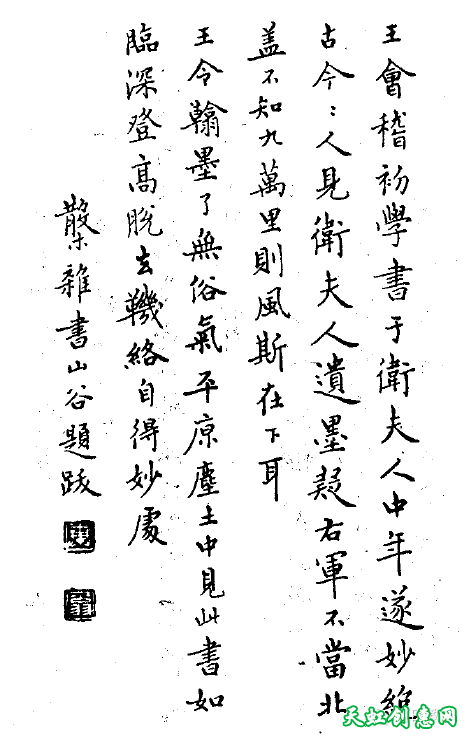 王會稽初學書于衛夫人中年遂妙絕
古今:人見衛夫人遺墨疑右軍不當北
蓋不知九萬里則風斯在下耳
王令翰墨了無俗氣平原塵土中見此書如
臨深登高脫去鞿絡自得妙處
槩雜書山谷題跋
天虹创意网